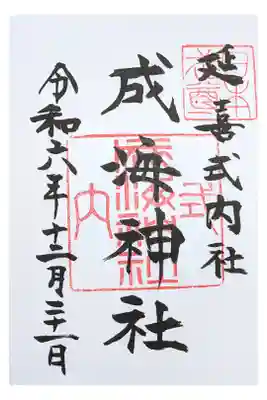 延喜式内社
成海神社
式内
令和六年十二月三十一日